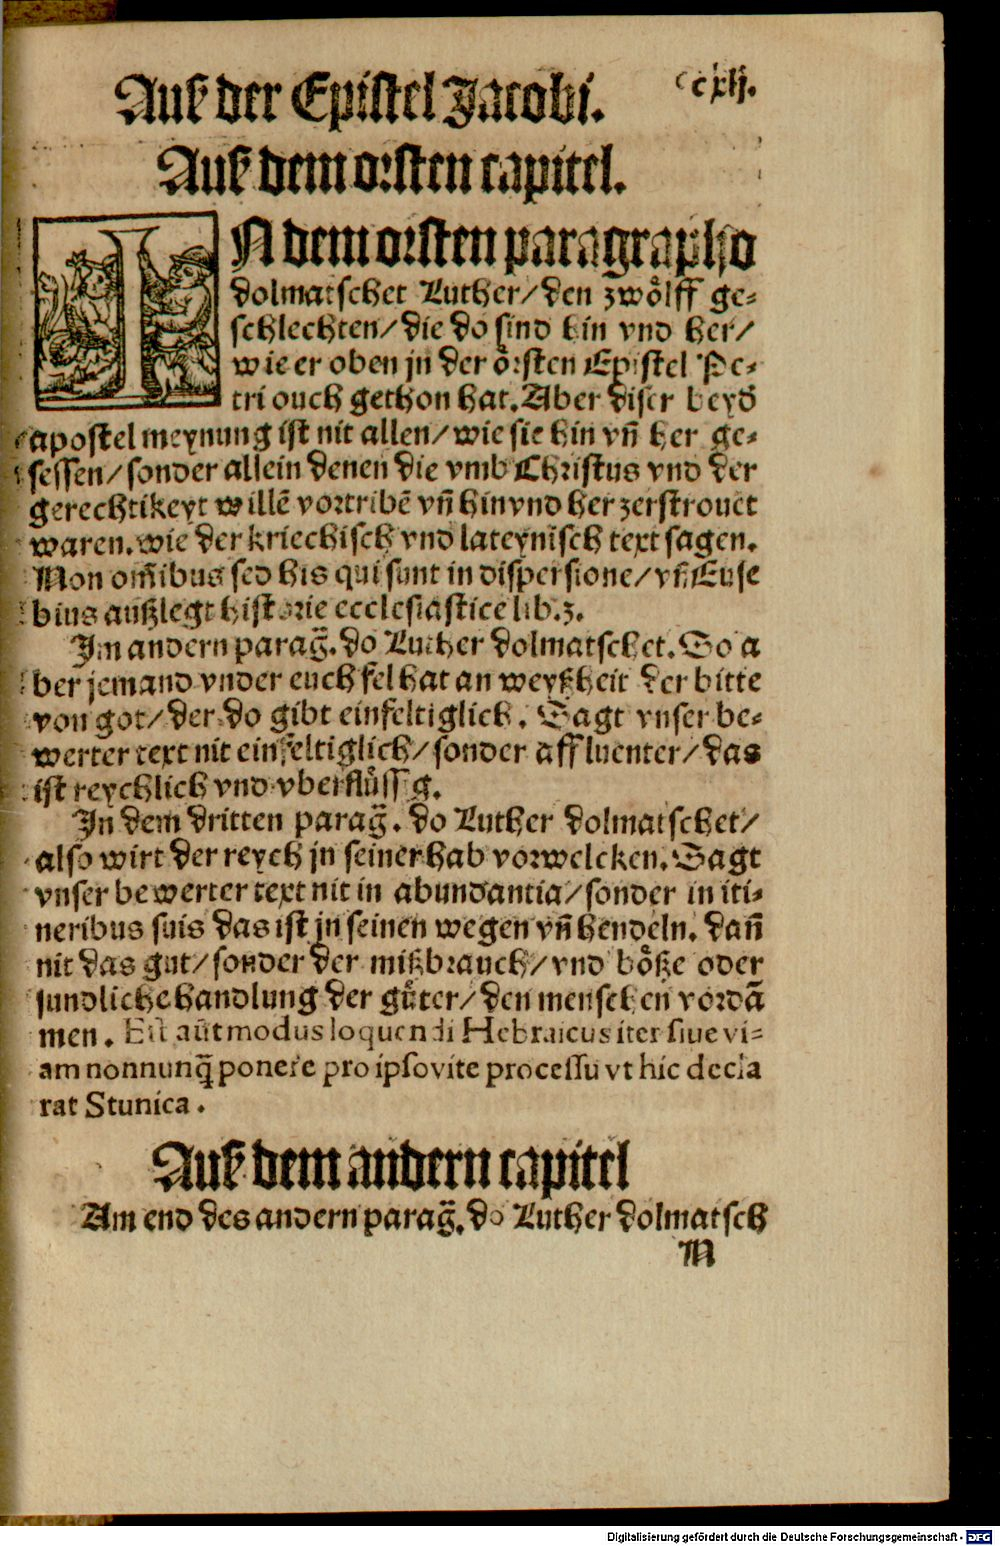 Auß der Epistel Jacobi. ccxlj.
Auß dem orsten capitel.
IN dem orsten paragrapho
dolmatschet Luther/den zwoͤlff ge⸗
schlechten/die do sind hin vnd her/
wie er oben jn der oͤrsten Epistel Pe⸗
tri ouch gethon hat. Aber diser beyd̕
apostel meynung ist nit allen/wie sie hin vñ her ge⸗
sessen/sonder allein denen die vmb Christus vnd der
gerechtikeyt willē vortribē vñ hin vnd her zerstrouet
waren. wie der kriechisch vnd lateynisch text sagen.
Non om̄ibus sed his qui sunt in dispersione/vñ Euse
bius außlegt historie ecclesiastice lib. 3.
Im andern parag̃. do Luther dolmatschet. So a
ber jemand vnder euch fel hat an weyßheit der bitte
von got/der do gibt einfeltiglich. Sagt vnser be⸗
werter text nit einfeltiglich/sonder affluenter/das
ist reychlich vnd vberfluͤssig.
In dem dritten parag̃. do Luther dolmatschet/
also wirt der reych jn seiner hab vorwelcken. Sagt
vnser bewerter text nit in abundantia/sonder in iti⸗
neribus suis das ist jn seinen wegen vñ hendeln. dañ
nit das gut/sonder der mißbrauch/vnd boͤße oder
sundliche handlung der guͤter/den menschen vordā
men. Est aūt modus loquendi Hebraicus iter siue vi⸗
am nonnunq̃ ponere pro ipso vite processu vt hic decla
rat Stunica.
Auß dem andern capitel
Am end des andern parag̃. do Luther dolmatsch
M
Digitalisierung gefördert durch die Deutsche Forschungsgemeinschaft - DFG